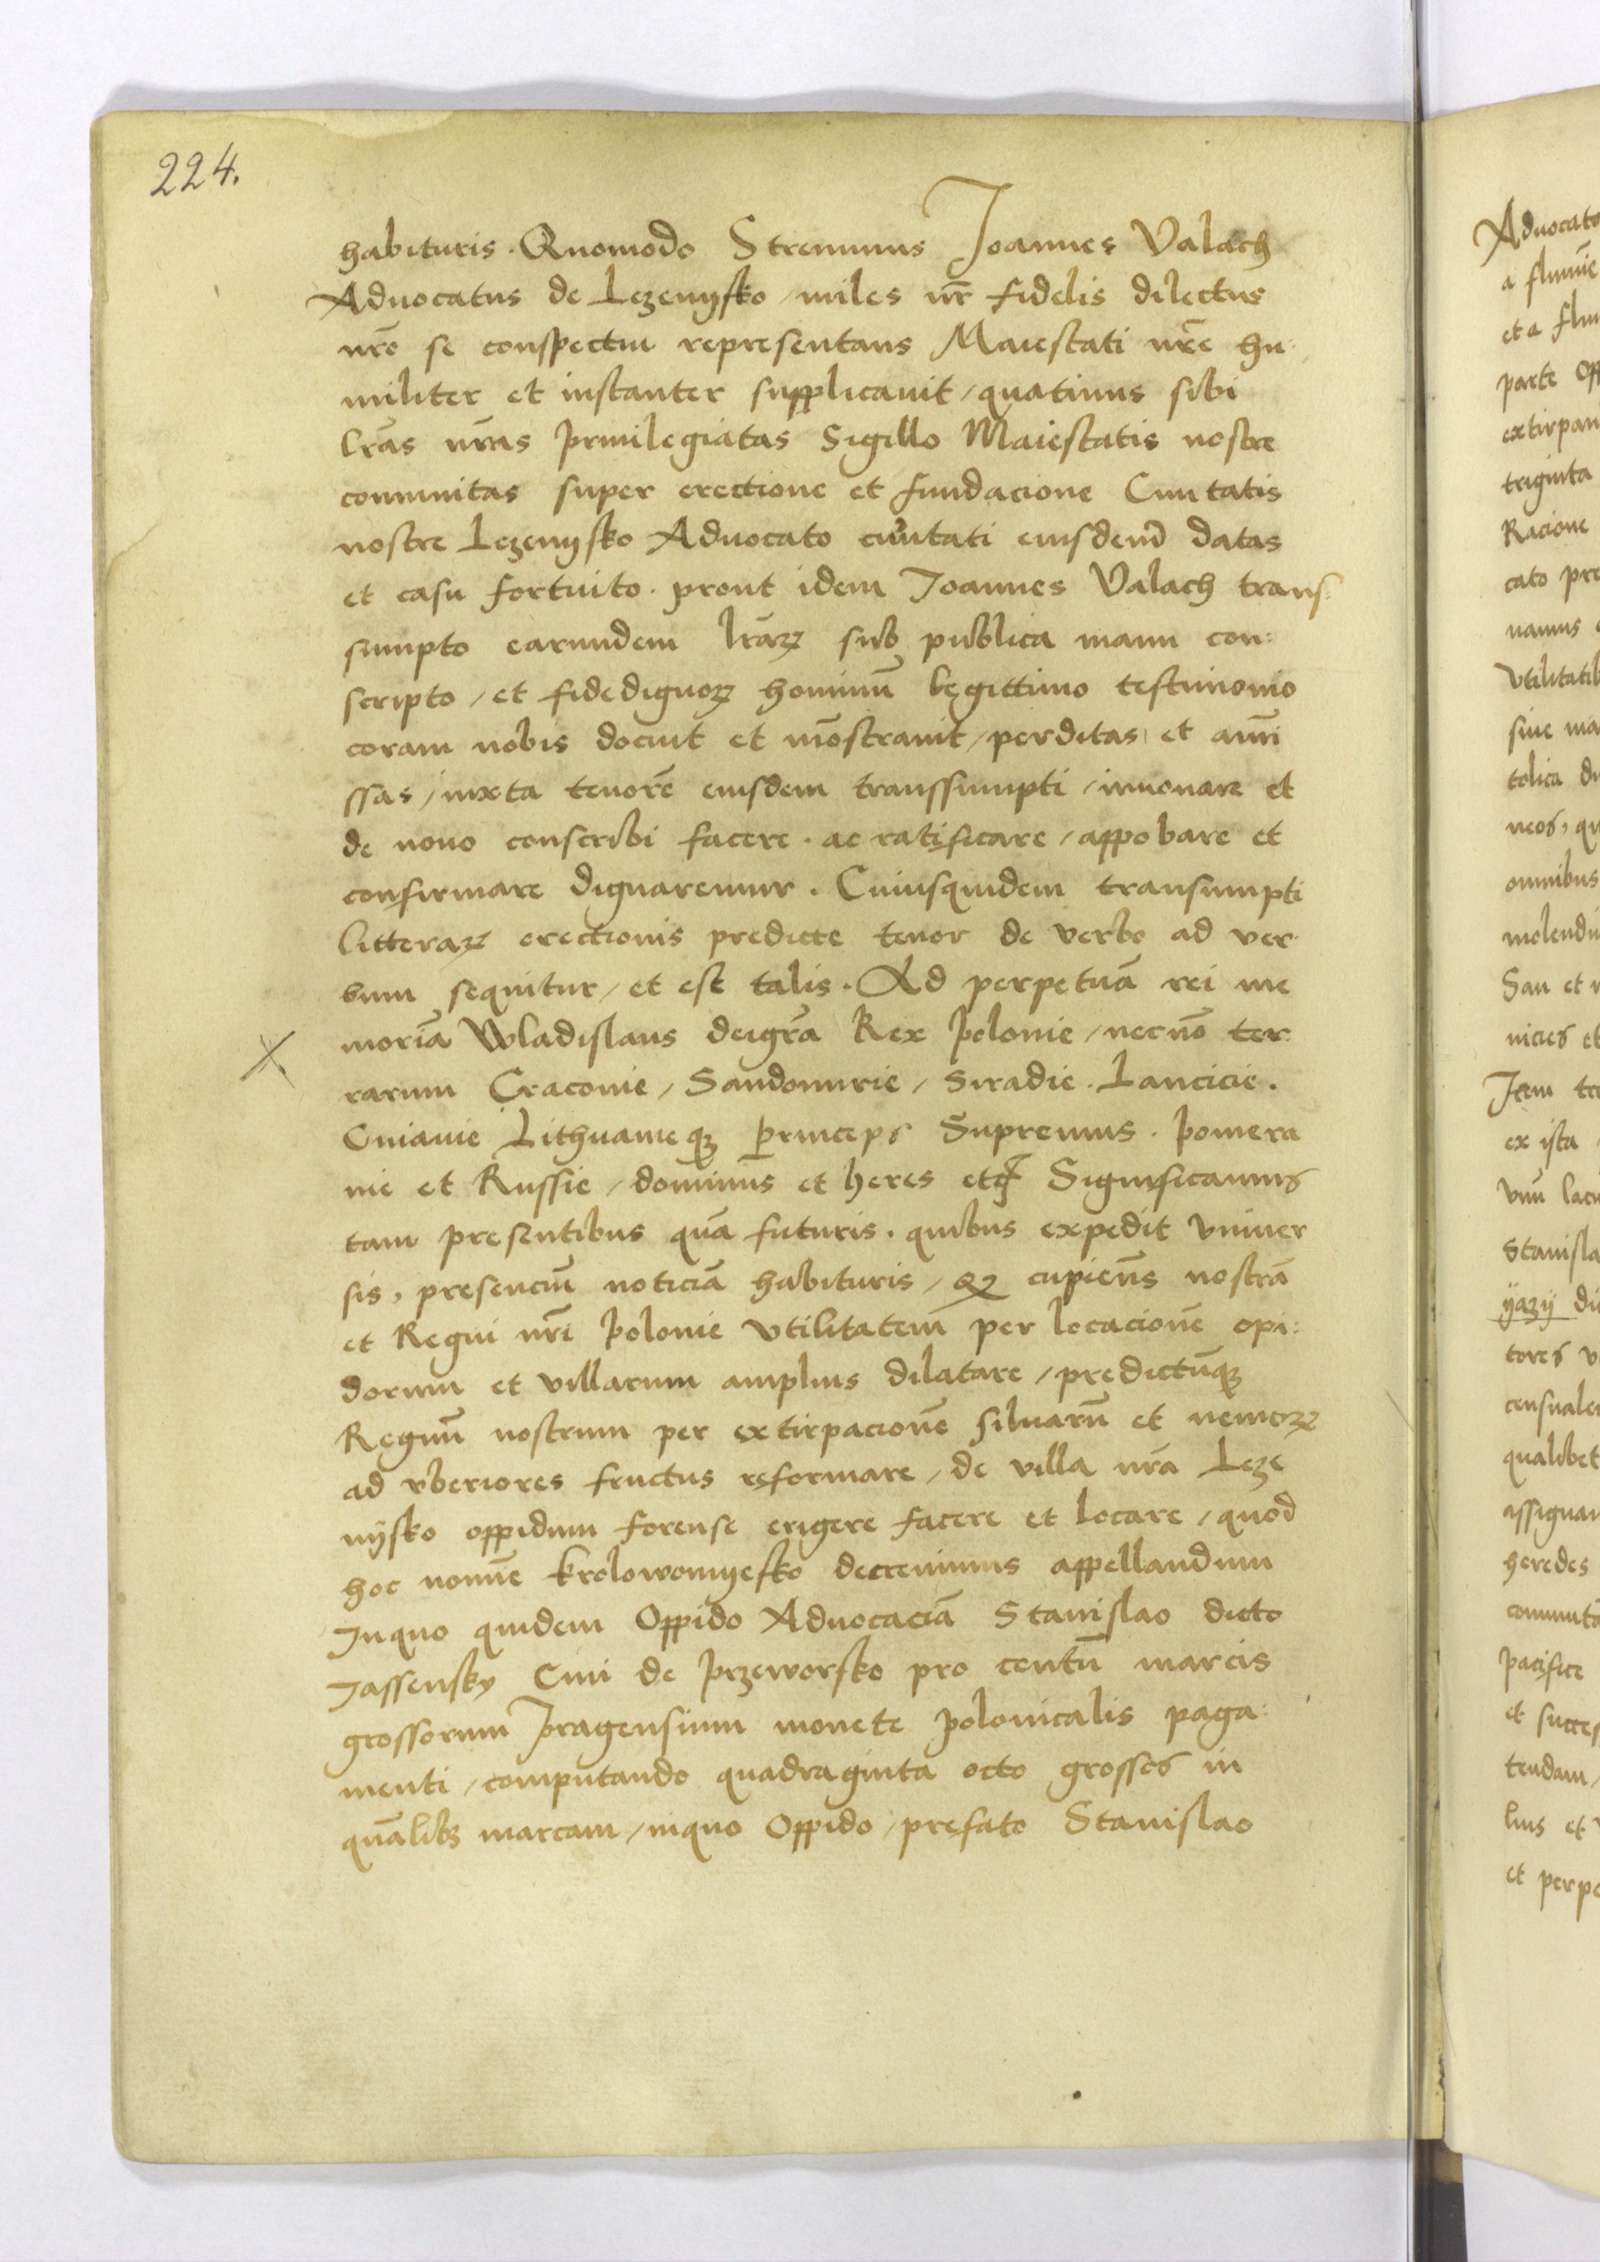 224.
habituris. Quomodo Strennuus Joannes Valach
Aduocatus de Lezenysko / miles nr̄ fidelis dilectus
nrō se conspectui representans Maiestati nrē hu
militer et instanter supplicauit / quatinus sibi
lrās nrās priuilegiatas Sigillo Maiestatis nostre
communitas super erectione et fundacione Ciuitatis
nostre Lezenysko Aduocato ciuitati eiusdem datas
et casu fortuito. prout idem Joannes Valach trans:
sumpto earundem lrāꝝ sub publica manu con:
scripto / et fidedignoꝝ hominū legittimo testimonio
coram nobis docuit et mōstrauit / perditas et ami
ssas / iuxta tenorē eiusdem transsumpti / innouare et
de nouo conscribi facere. ac ratificare / appobare et
confirmare dignaremur. Cuiusquidem transumpti
litteraꝝ erectionis predicte tenor de verbo ad ver
bum sequitur / et est talis. Ad perpetuā rei me
moriā Wladislaus deigrā Rex Polonie / necnō ter
rarum Cracouie / Sandomirie / Siradie. Lancicie.
Cuiauie Lithuanieqꝫ Princeps Supremus. Pomera
nie et Russie / dominus et heres etc̄ Significamus
tam presentibus quā futuris. quibus expedit vniuer
sis, presenciū noticiā habituris / qꝫ cupiens nostrā
et Regni nrī Polonie vtilitatem per locacionē opi:
dorum et villarum amplius dilatare / predictūqꝫ
Regnū nostrum per extirpacionē siluarū et nemoꝝ
ad vberiores fructus reformare / de villa nrā Leze
nysko oppidum forense erigere facere et locare / quod
hoc nomine Krolowomyesko decreuimus appellandum
Inquo quidem Oppido Aduocaciā Stanislao dicto
Jassensky Ciui de Przeworsko pro centū marcis
grossorum Pragensium monete Polonicalis paga:
menti / computando quadraginta octo grossos in
quālibꝫ marcam / inquo Oppido / prefato Stanislao
Aduocato
et a
parte
triginta
Racione
cato
omnibus
San et
nicies et
Item
ex ista
yazy
tores
qualibet
heredes
pacifice
et
tendam
et
et